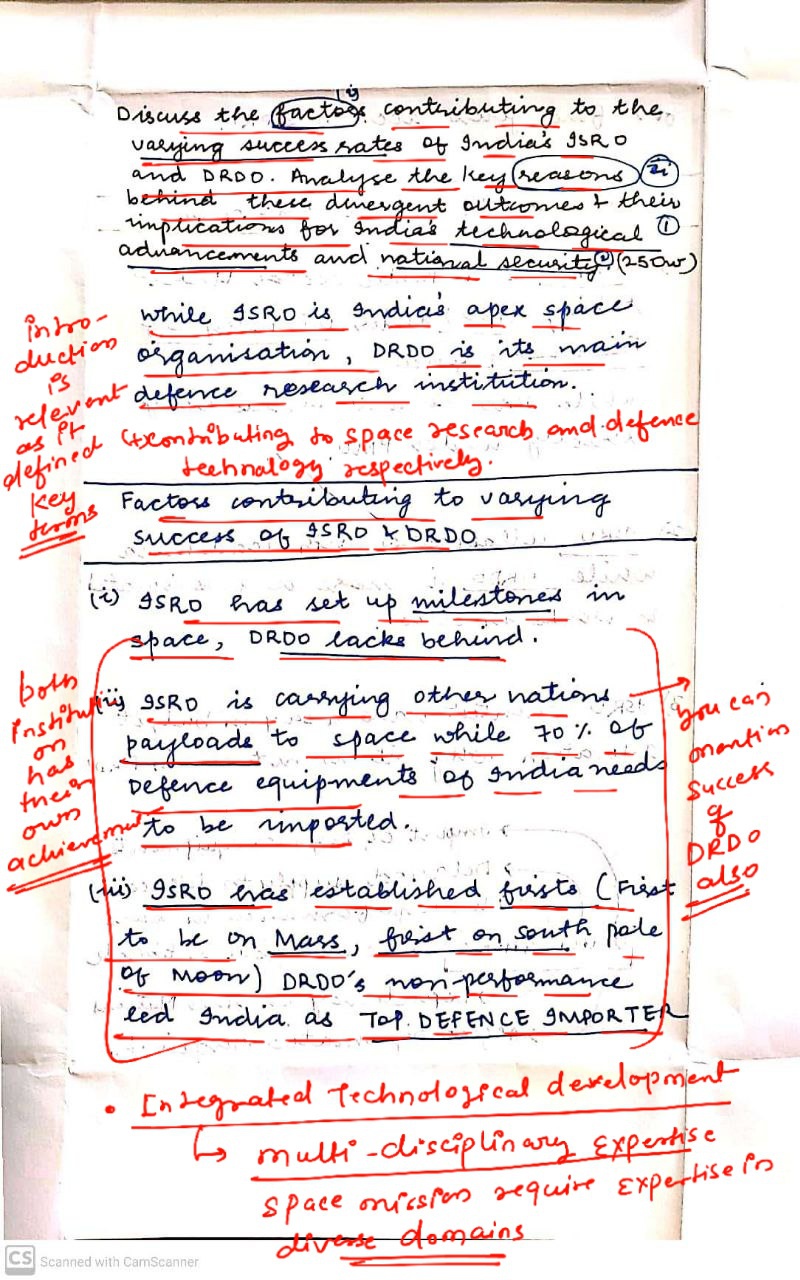 Discuss the factors contributing to the
varying success rates of India's ISRO
and DRDO. Analyse the key reasons
behind these divergent outcomes & their
implications for India's technological ①
advancements and national security ② (250w)
While ISRO is India's apex space
organisation, DRDO is its main
defence research institution.
intro-
duction
is
relevent
as it
defined
key
terms
↳contributing to space research and defence
technology respectively.
Factors contributing to varying
success of ISRO & DRDO
(i) ISRO has set up milestones in
space, DRDO lacks behind.
(ii) ISRO is carrying other nations
payloads to space while 70% of
Defence equipments of India needs
to be imported.
both
instituti
on
has
their
own
achievement
you can
mention
success
of
DRDO
also
(iii) ISRO has established firsts (First
to be on Mass, first on south pole
of Moon) DRDO's non-performance
led India as TOP DEFENCE IMPORTER
• Integrated Technological development
↳ multi-disciplinary expertise
space mission require expertise in
diverse domains
CS Scanned with CamScanner